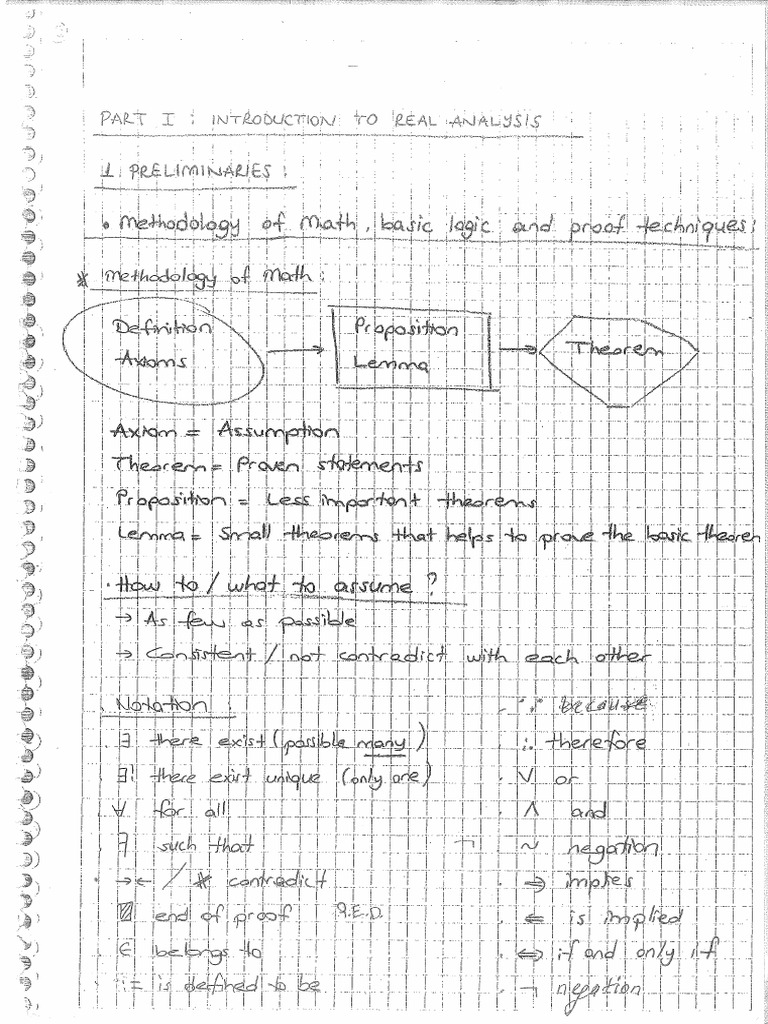 PART I : INTRODUCTION TO REAL ANALYSIS
1. PRELIMINARIES :
• Methodology of Math, basic logic and proof techniques:
* Methodology of Math :
Definition
Axioms
Proposition
Lemma
Theorem
Axiom = Assumption
Theorem = Proven statements
Proposition = Less important theorems
Lemma = Small theorems that helps to prove the basic theorem
· How to / what to assume ?
→ As few as possible
→ Consistent / not contradict with each other
. Notation :
∃ there exist (possible many)
∃! there exist unique (only one)
∀ for all
∃ such that
→← / * contradict
▨ end of proof Q.E.D.
∈ belongs to
:= is defined to be
∵ because
∴ therefore
∨ or
∧ and
¬ ~ negation
⇒ implies
⇐ is implied
⇔ if and only if
¬ negation